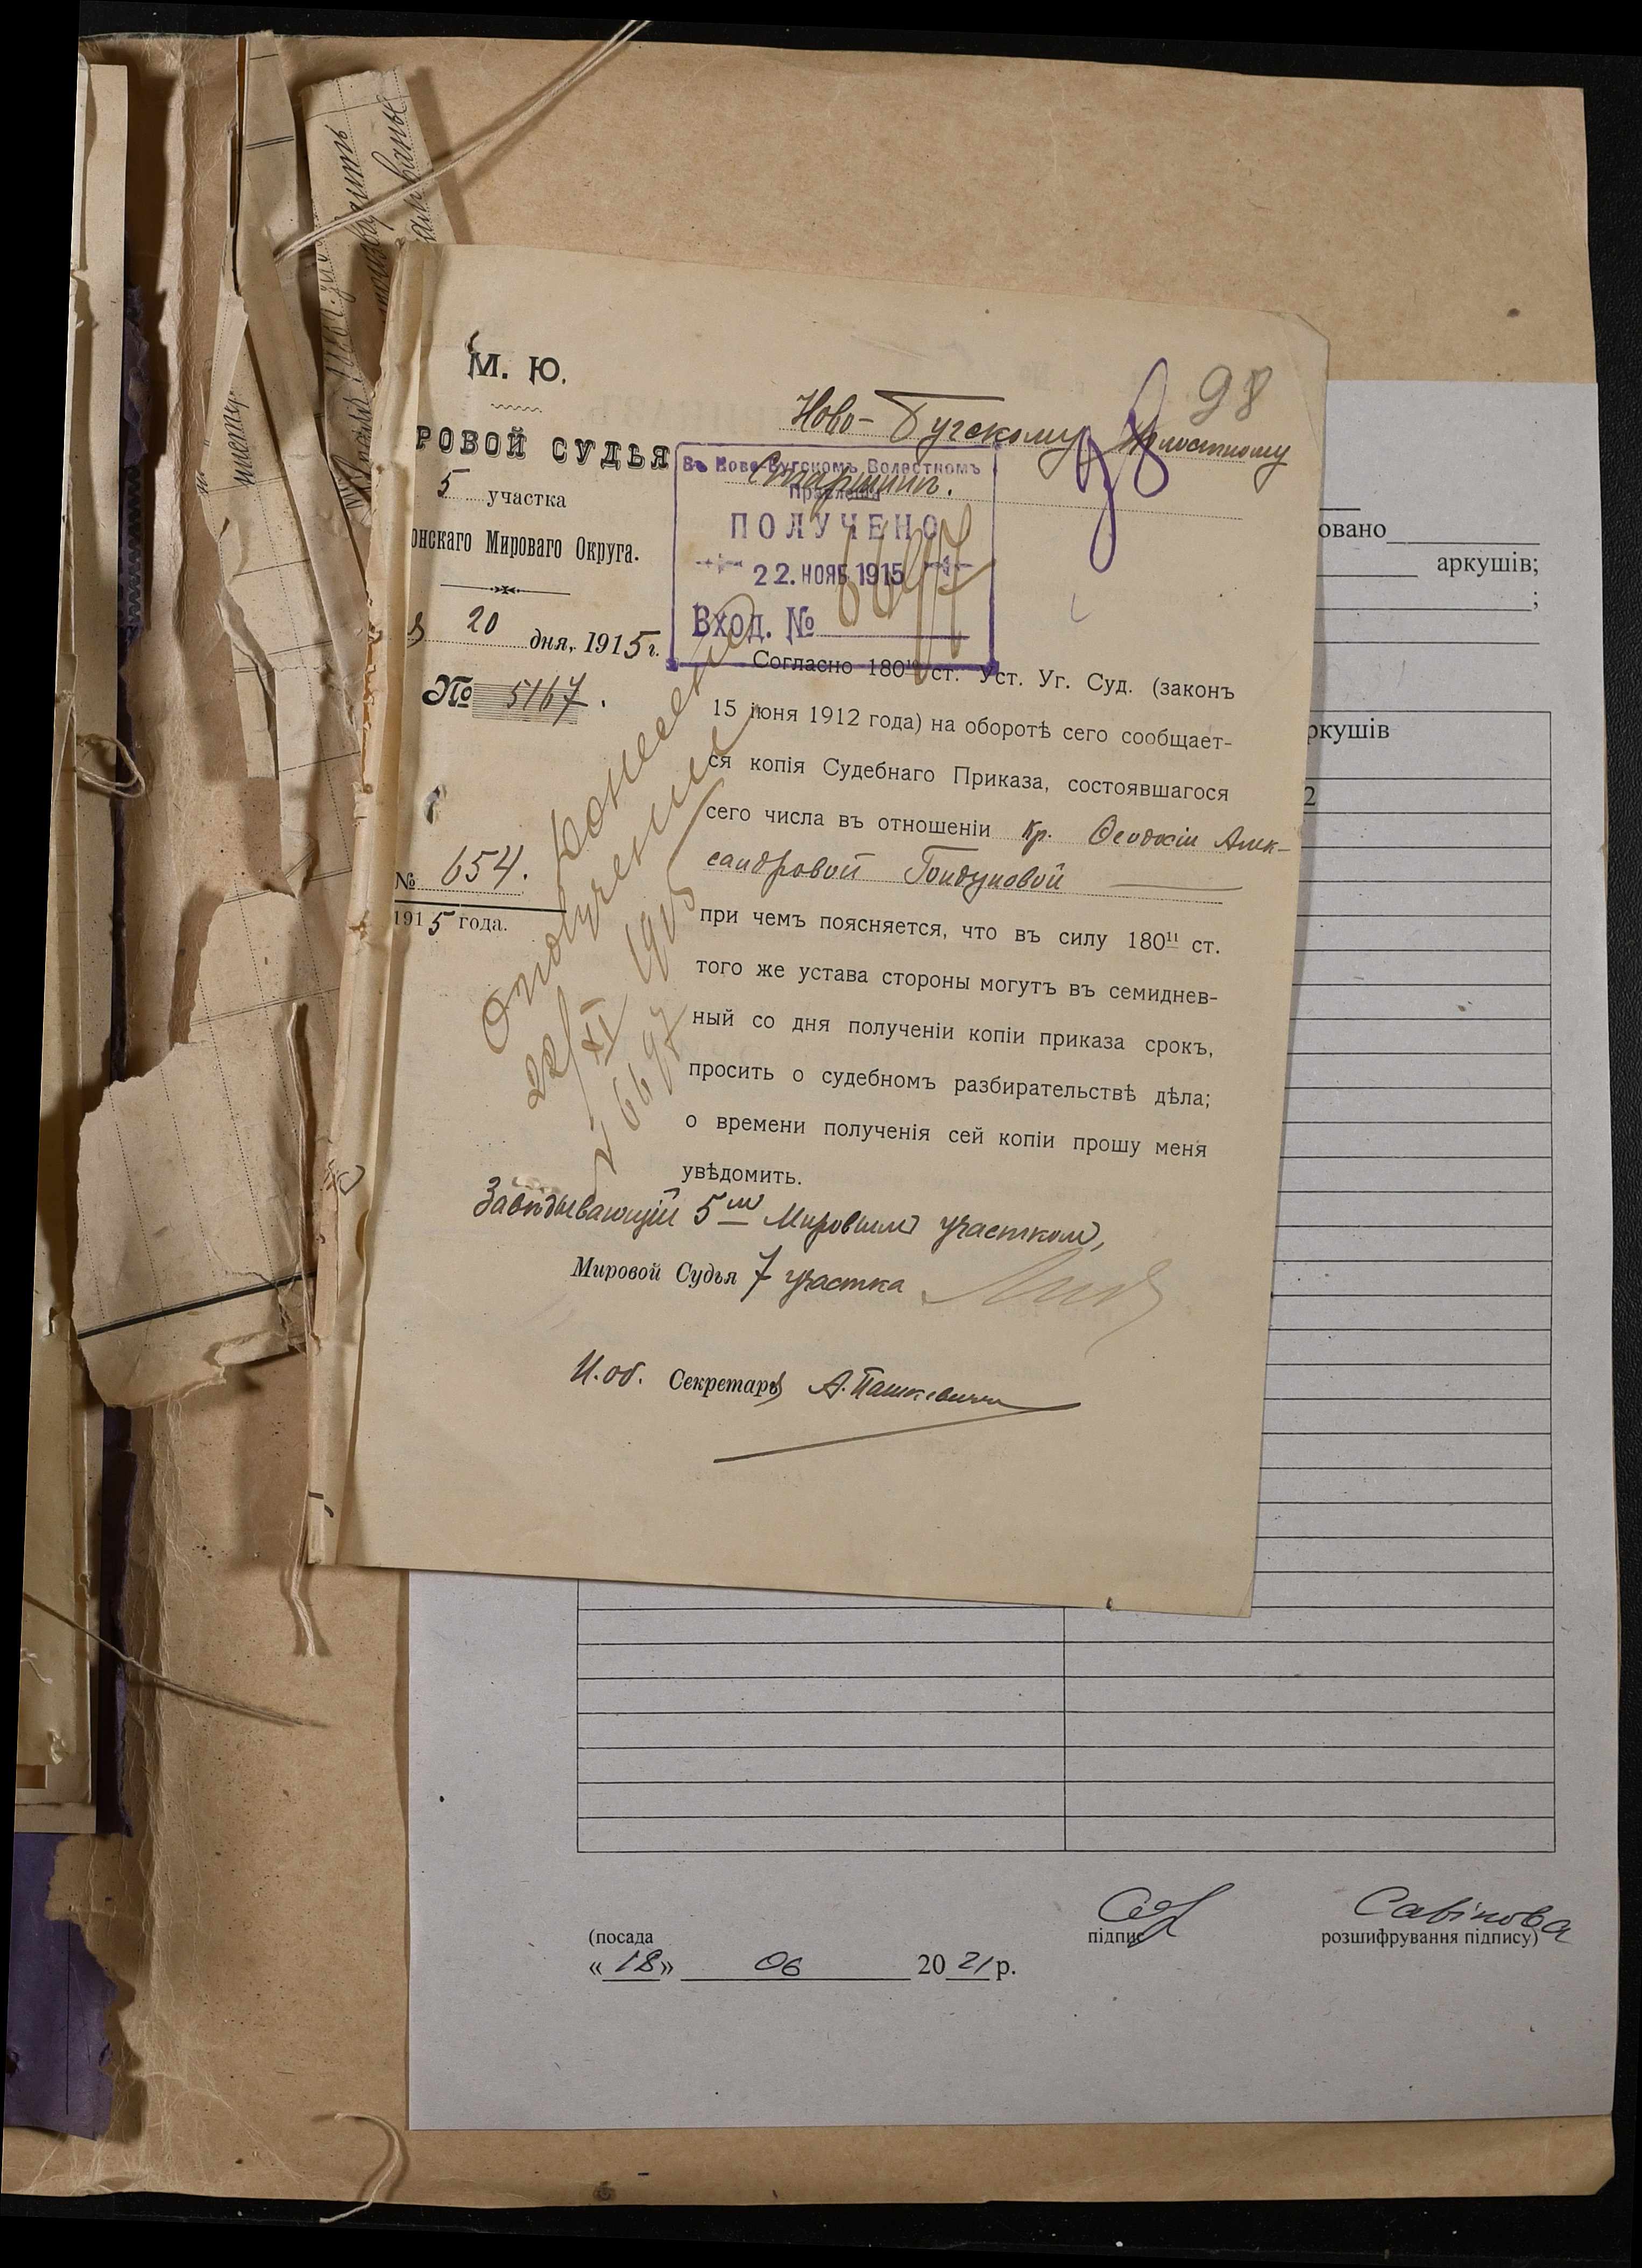 98
М. Ю.
РОВОЙ СУДЬЯ
5 участка
онскаго Мироваго Округа.
20 дня, 1915 г.
№ 5167.
№ 654.
1915 года.
Ново-Бугскому Волостному
Старшинѣ.
Въ Ново-Бугскомъ Волостномъ
Правленіи
ПОЛУЧЕНО
22. НОЯБ 1915
Вход. № 6697
Согласно 180¹⁰ ст. Уст. Уг. Суд. (законъ
15 іюня 1912 года) на оборотѣ сего сообщает-
ся копія Судебнаго Приказа, состоявшагося
сего числа въ отношеніи кр. Ѳеодосіи Алек-
сандровой Гондуновой
при чемъ поясняется, что въ силу 180¹¹ ст.
того же устава стороны могутъ въ семиднев-
ный со дня полученіи копіи приказа срокъ,
просить о судебномъ разбирательствѣ дѣла;
о времени полученія сей копіи прошу меня
увѣдомить.
Завѣдывающій 5ᵐ Мировымъ участкомъ,
Мировой Судья 7 участка
И.об. Секретаря А. Пашкевичъ
о полученіи
22/XI 1915
№ 6697
овано
аркушів;
;
ркушів
2
(посада
підпис
Савінова
розшифрування підпису)
«18» 06 2021 р.